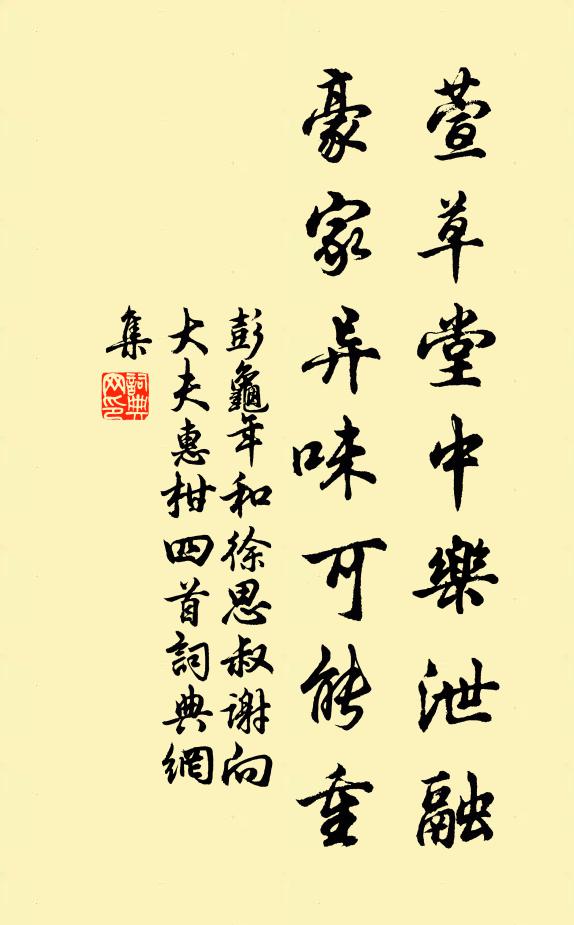 萱草堂中樂泄融
豪家异味可能重
彭龜年和徐思叔謝向
大夫惠柑四首詞典網
集
詞典网印